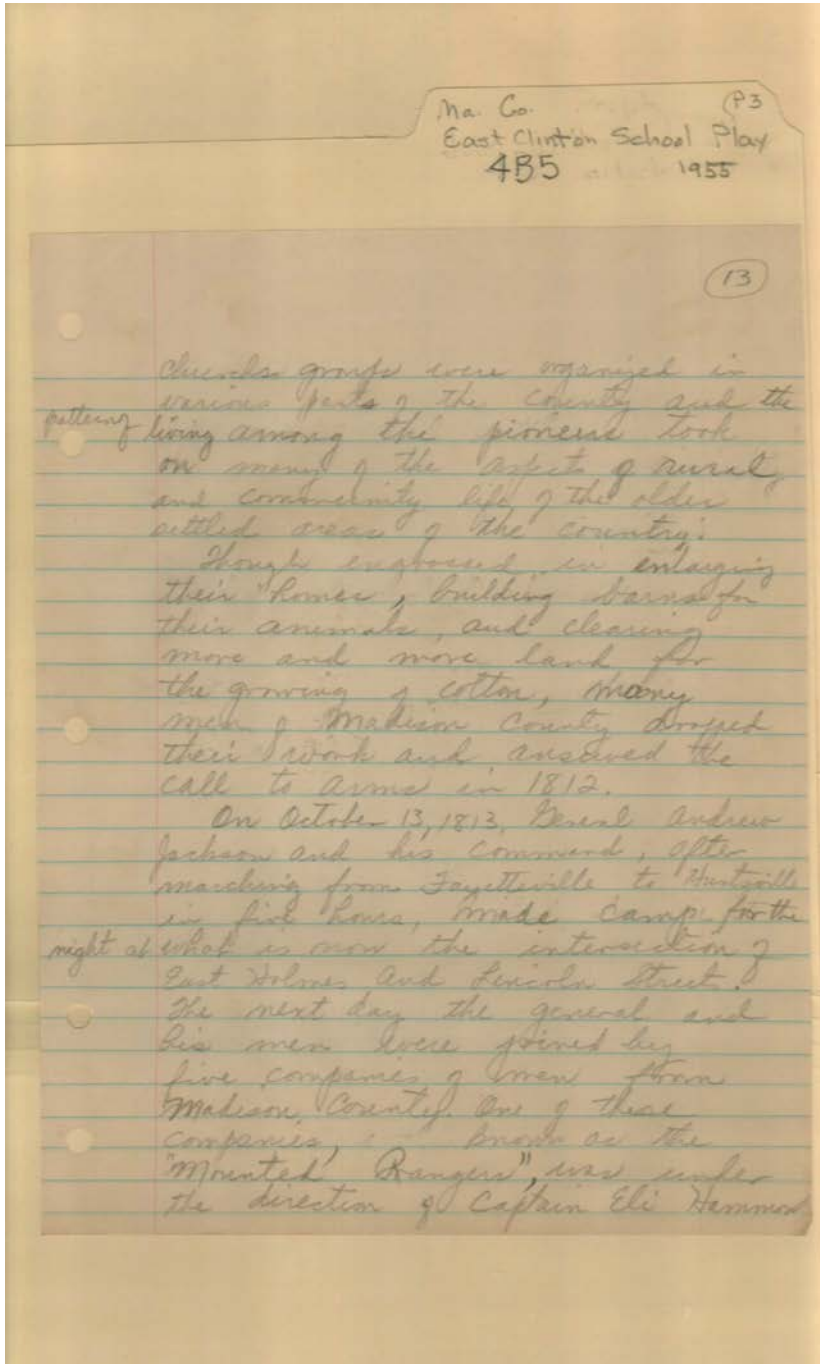 Ma. Co. P3
East Clinton School Play
4B5 1955
13
church groups were organized in
various parts of the county and the
pattern of living among the pioneers took
on many of the aspects of rural
and community life of the older
settled areas of the country.
Though engrossed in enlarging
their homes, building barns for
their animals, and clearing
more and more land for
the growing of cotton, many
men of Madison County dropped
their work and answered the
call to arms in 1812.
On October 13, 1813, General Andrew
Jackson and his command, after
marching from Fayetteville to Huntsville
in five hours, made camp for the
night at what is now the intersection of
East Holmes and Lincoln Street.
The next day the general and
his men were joined by
five companies of men from
Madison County. One of these
companies, known as the
"Mounted Rangers", was under
the direction of Captain Eli Hammon